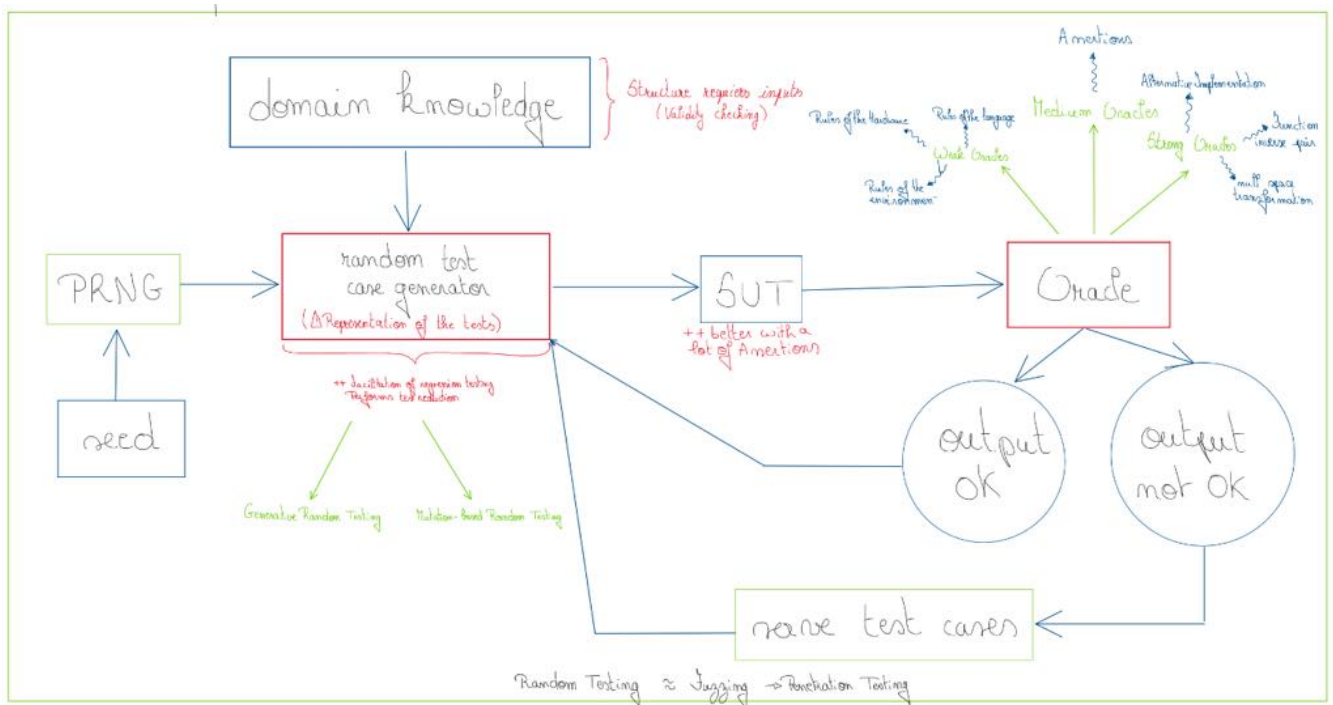 domain knowledge
Structure requiers inputs
(Validity checking)
Assertions
Alternative Implementation
Rules of the Hardware
Rules of the language
Medium Oracles
Function
inverse pair
Strong Oracles
Weak Oracles
Rules of the
environment
null space
transformation
PRNG
random test
case generator
(Δ Representation of the tests)
SUT
Oracle
++ better with a
lot of Assertions
++ facilitation of regression testing
Performs test reduction
seed
output
OK
output
not OK
Generative Random Testing
Mutation-based Random Testing
save test cases
Random Testing ≈ Fuzzing → Penetration Testing